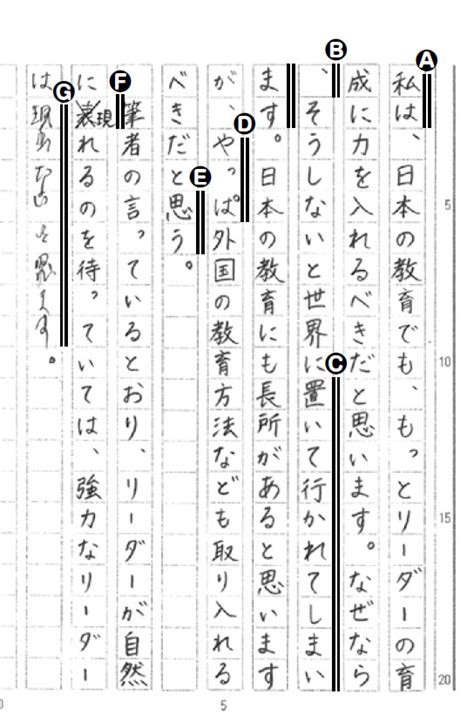 私は、日本の教育でも、もっとリーダーの育
成に力を入れるべきだと思います。なぜなら
、そうしないと世界に置いて行かれてしまい
ます。日本の教育にも長所があると思います
が、やっぱ外国の教育方法なども取り入れる
べきだと思う。
筆者の言っているとおり、リーダーが自然
に現れるのを待っていては、強力なリーダー
は現れないと思います。
A
B
C
D
E
F
G
5
10
15
20
5